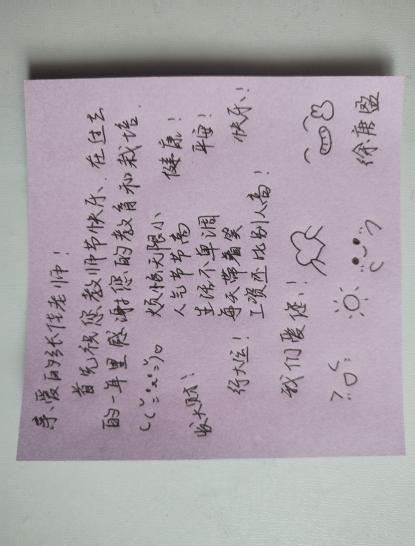 亲爱的张老师！
首先祝您教师节快乐、在过去
的一年里感谢您的教育和栽培.
烦恼无限小 健康！
人气节节高
收大财！ 生活不单调 平安！
每天带着笑
行大运！ 工资还比别人高！ 快乐！
我们爱您！
徐唐盈